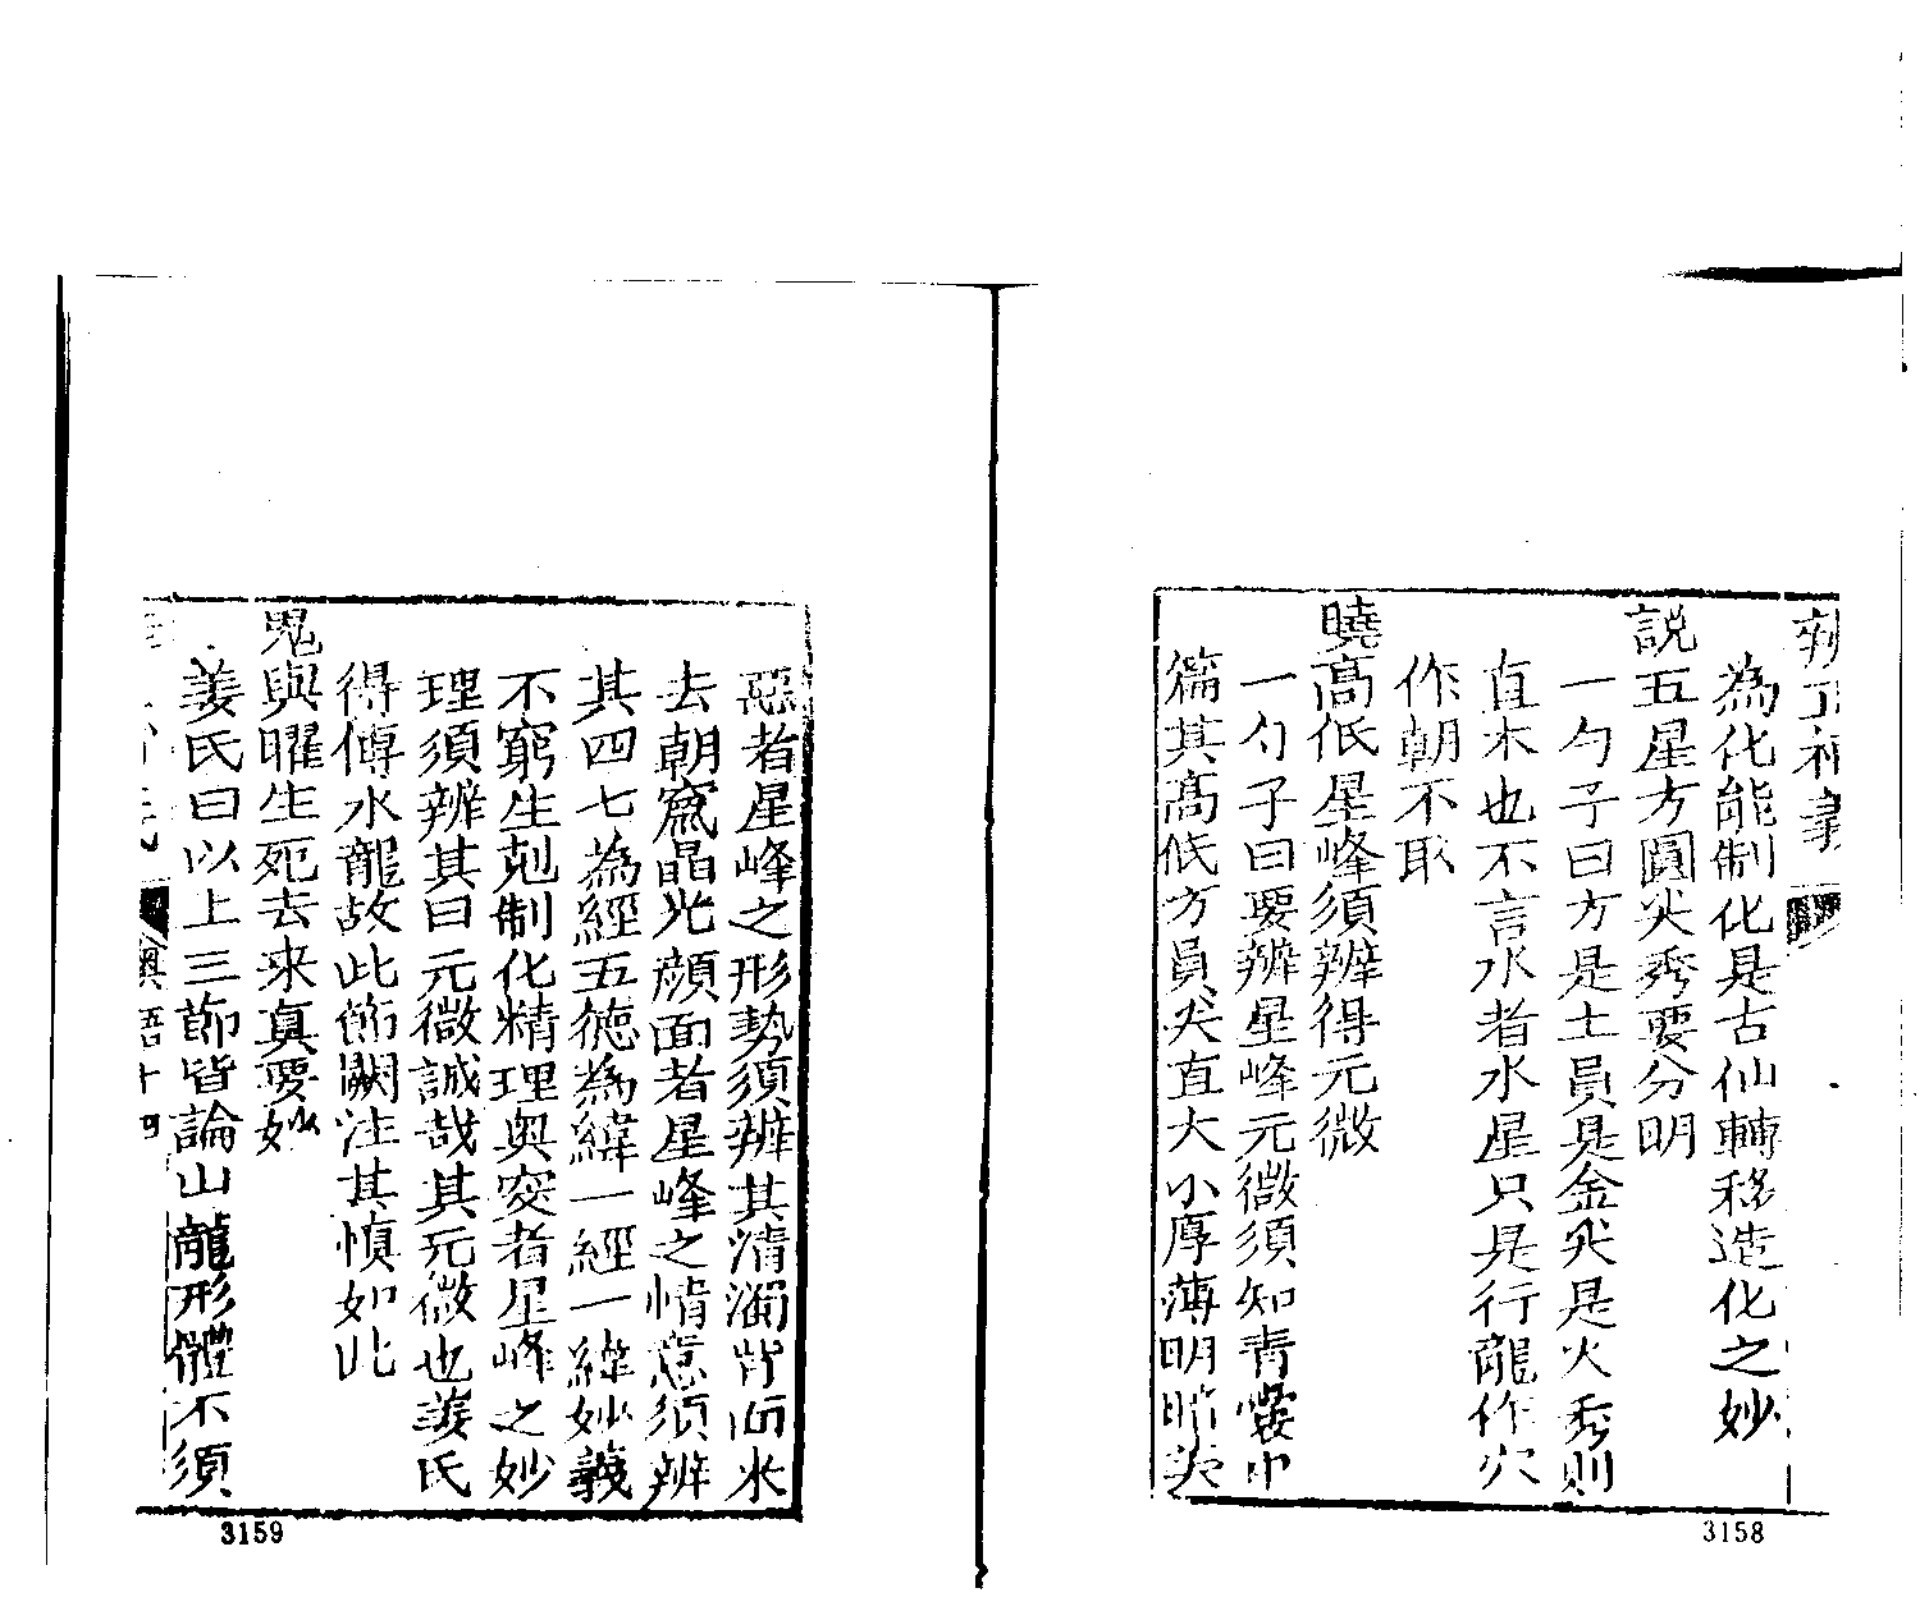 為化能制化是古仙轉移造化之妙
説五星方圓尖秀要分明
一勺子曰方是土員是金尖是火秀則
直木也不言水者水星只是行龍作穴
作朝不取
曉髙低星峰須辨得元微
一勺子曰要辨星峰元微須知青囊中
篇其髙低方員尖直大小厚薄明暗美
3158
惡者星峰之形勢須辨其清濁背面水
去朝窩晶光顔面者星峰之情意須辨
其四七為經五德為緯一經一緯妙義
不窮生剋制化精理奥突者星峰之妙
理須辨其曰元微誠哉其元微也姜氏
得傳水龍故此節闕注其慎如此
鬼與曜生死去来真要妙
姜氏曰以上三節皆論山龍形體不須
奥語十四
3159